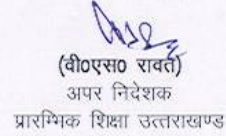 (वी०एस० रावत)
अपर निदेशक
प्रारम्भिक शिक्षा उत्तराखण्ड